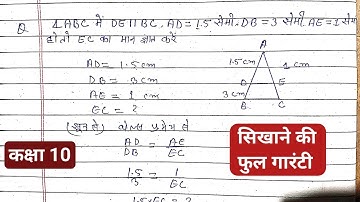 Q △ABC में DE||BC, AD=1.5 सेमी, DB=3 सेमी, AE=1 सेमी
हो तो EC का मान ज्ञात करें
A
AD = 1.5 cm
DB = 3 cm
AE = 1 cm
EC = ?
1.5cm
1 cm
D
E
3cm
B
C
(सूत्र से) थेल्स प्रमेय से
AD/DB = AE/EC
1.5/3 = 1/EC
1.5×EC = 3
कक्षा 10
सिखाने की
फुल गारंटी